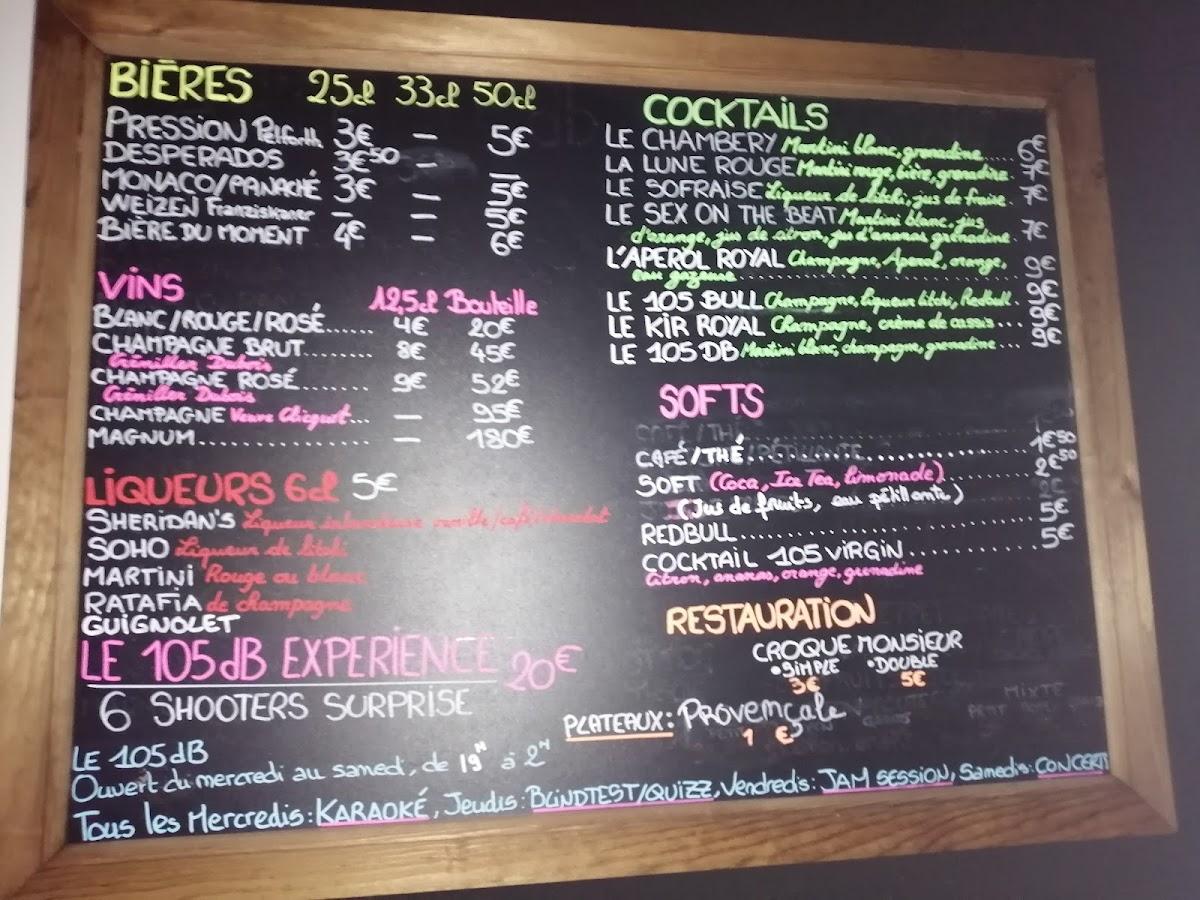 BIÈRES 25cl 33cl 50cl
PRESSION Pelforth 3€ — 5€
DESPERADOS 3€50 — —
MONACO/PANACHÉ 3€ — 5€
WEIZEN Franziskaner — — 5€
BIÈRE DU MOMENT 4€ — 6€
VINS 12,5cl Bouteille
BLANC/ROUGE/ROSÉ...... 4€ 20€
CHAMPAGNE BRUT......... 8€ 45€
Crémiller Dubois
CHAMPAGNE ROSÉ........ 9€ 52€
Crémiller Dubois
CHAMPAGNE Veuve Clicquot... — 95€
MAGNUM.................. — 180€
LIQUEURS 6cl 5€
SHERIDAN'S Liqueur irlandaise vanille/café/chocolat
SOHO Liqueur de litchi
MARTINI Rouge ou blanc
RATAFIA de champagne
GUIGNOLET
LE 105dB EXPERIENCE 20€
6 SHOOTERS SURPRISE
COCKTAILS
LE CHAMBERY Martini blanc, grenadine..... 6€
LA LUNE ROUGE Martini rouge, bière, grenadine. 7€
LE SOFRAISE Liqueur de litchi, jus de fraise. 7€
LE SEX ON THE BEAT Martini blanc, jus
d'orange, jus de citron, jus d'ananas grenadine. 7€
L'APEROL ROYAL Champagne, Aperol, orange,
eau gazeuse................................ 9€
LE 105 BULL Champagne, liqueur litchi, Redbull. 9€
LE KIR ROYAL Champagne, crème de cassis... 9€
LE 105 DB Martini blanc, champagne, grenadine... 9€
SOFTS
CAFÉ/THÉ.............................. 1€50
SOFT (Coca, Ice Tea, Limonade).......... 2€50
(Jus de fruits, eau pétillante)
REDBULL............................... 5€
COCKTAIL 105 VIRGIN............ 5€
Citron, ananas, orange, grenadine
RESTAURATION
CROQUE MONSIEUR
•SIMPLE •DOUBLE
3€ 5€
PLATEAUX: Provençale
1 €5
LE 105dB
Ouvert du mercredi au samedi, de 19H à 2H
Tous les Mercredis: KARAOKÉ, Jeudis: BLINDTEST/QUIZZ, Vendredis: JAM SESSION, Samedis: CONCERT